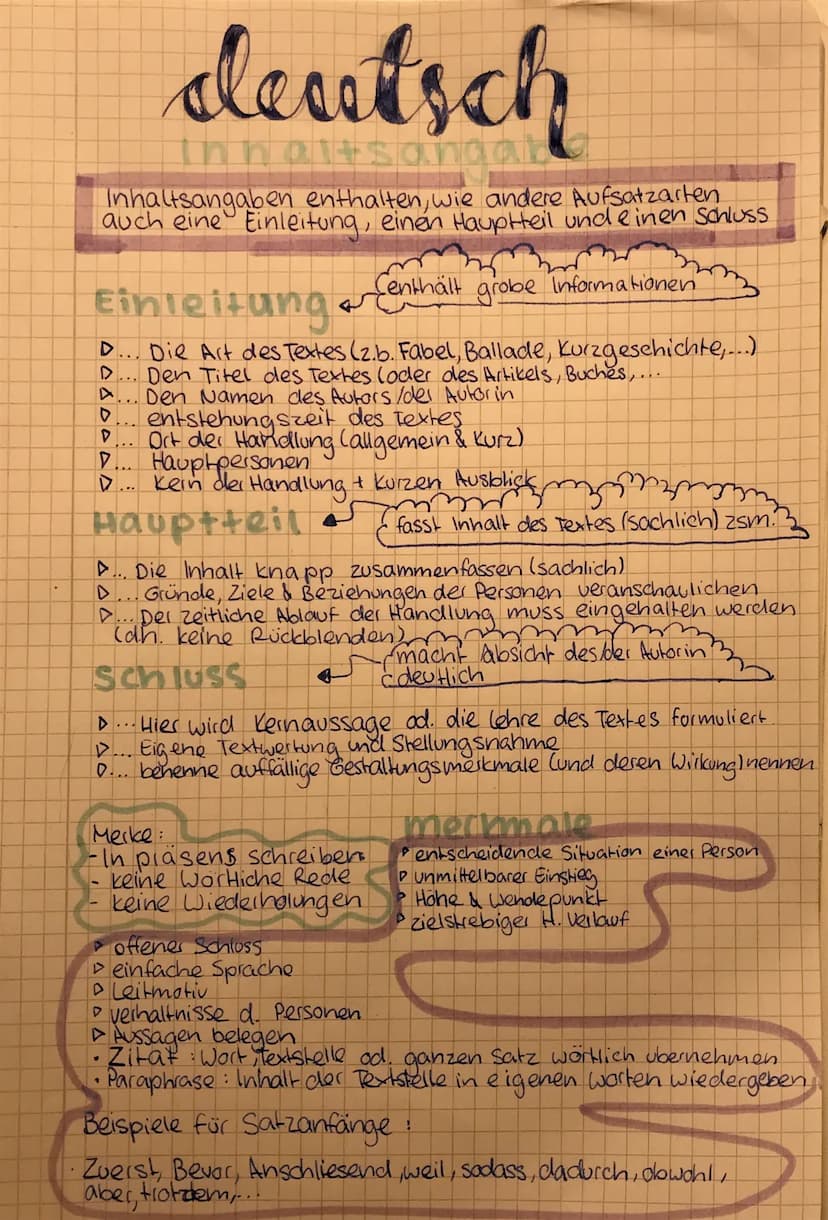 deutsch
Inhaltsangabe
Inhaltsangaben enthalten, wie andere Aufsatzarten
auch eine Einleitung, einen Hauptteil und einen Schluss
Einleitung
enthält grobe Informationen
▷... Die Art des Textes (z.b. Fabel, Ballade, Kurzgeschichte,...)
▷... Den Titel des Textes (oder des Artikels, Buches,...
▷... Den Namen des Autors/der Autorin
▷... entstehungszeit des Textes
▷... Ort der Handlung (allgemein & Kurz)
▷... Hauptpersonen
▷... Kern der Handlung + kurzen Ausblick
Hauptteil
fasst Inhalt des Textes (sachlich) zsm.
▷... Die Inhalt knapp zusammenfassen (sachlich)
▷... Gründe, Ziele & Beziehungen der Personen veranschaulichen
▷... Der zeitliche Ablauf der Handlung muss eingehalten werden
(dh. keine Rückblenden)
macht Absicht des/der Autorin
deutlich
Schluss
▷... Hier wird Kernaussage od. die Lehre des Textes formuliert
▷... Eigene Textwertung und Stellungsnahme
▷... auffällige Gestaltungsmerkmale (und deren Wirkung) nennen
Merke:
- In präsens schreiben
- keine Wörtliche Rede
- keine Wiederholungen
merkmale
▷ entscheidende Situation einer Person
▷ unmittelbarer Einstieg
▷ Höhe & Wendepunkt
▷ zielstrebiger H. verlauf
▷ offener Schloss
▷ einfache Sprache
▷ Leitmotiv
▷ verhältnisse d. Personen
▷ Aussagen belegen
• Zitat: Wort, Textstelle od. ganzen Satz wörtlich übernehmen
• Paraphrase: Inhalt der Textstelle in eigenen worten wiedergeben
Beispiele für Satzanfänge:
· Zuerst, Bevor, Anschliesend, weil, sodass, dadurch, obwohl,
aber, trotzdem,...